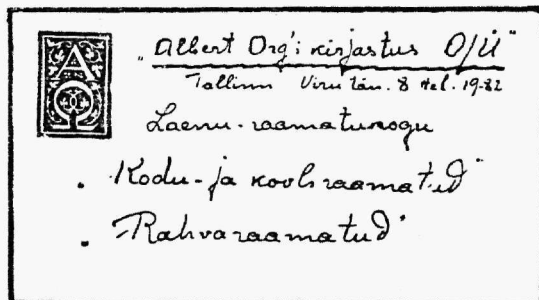 "Albert Org'i kirjastus O/Ü"
Tallinn Viru tän. 8 tel. 19-82
Laenu-raamatukogu
"Kodu- ja kooliraamatud"
"Rahvaraamatud"